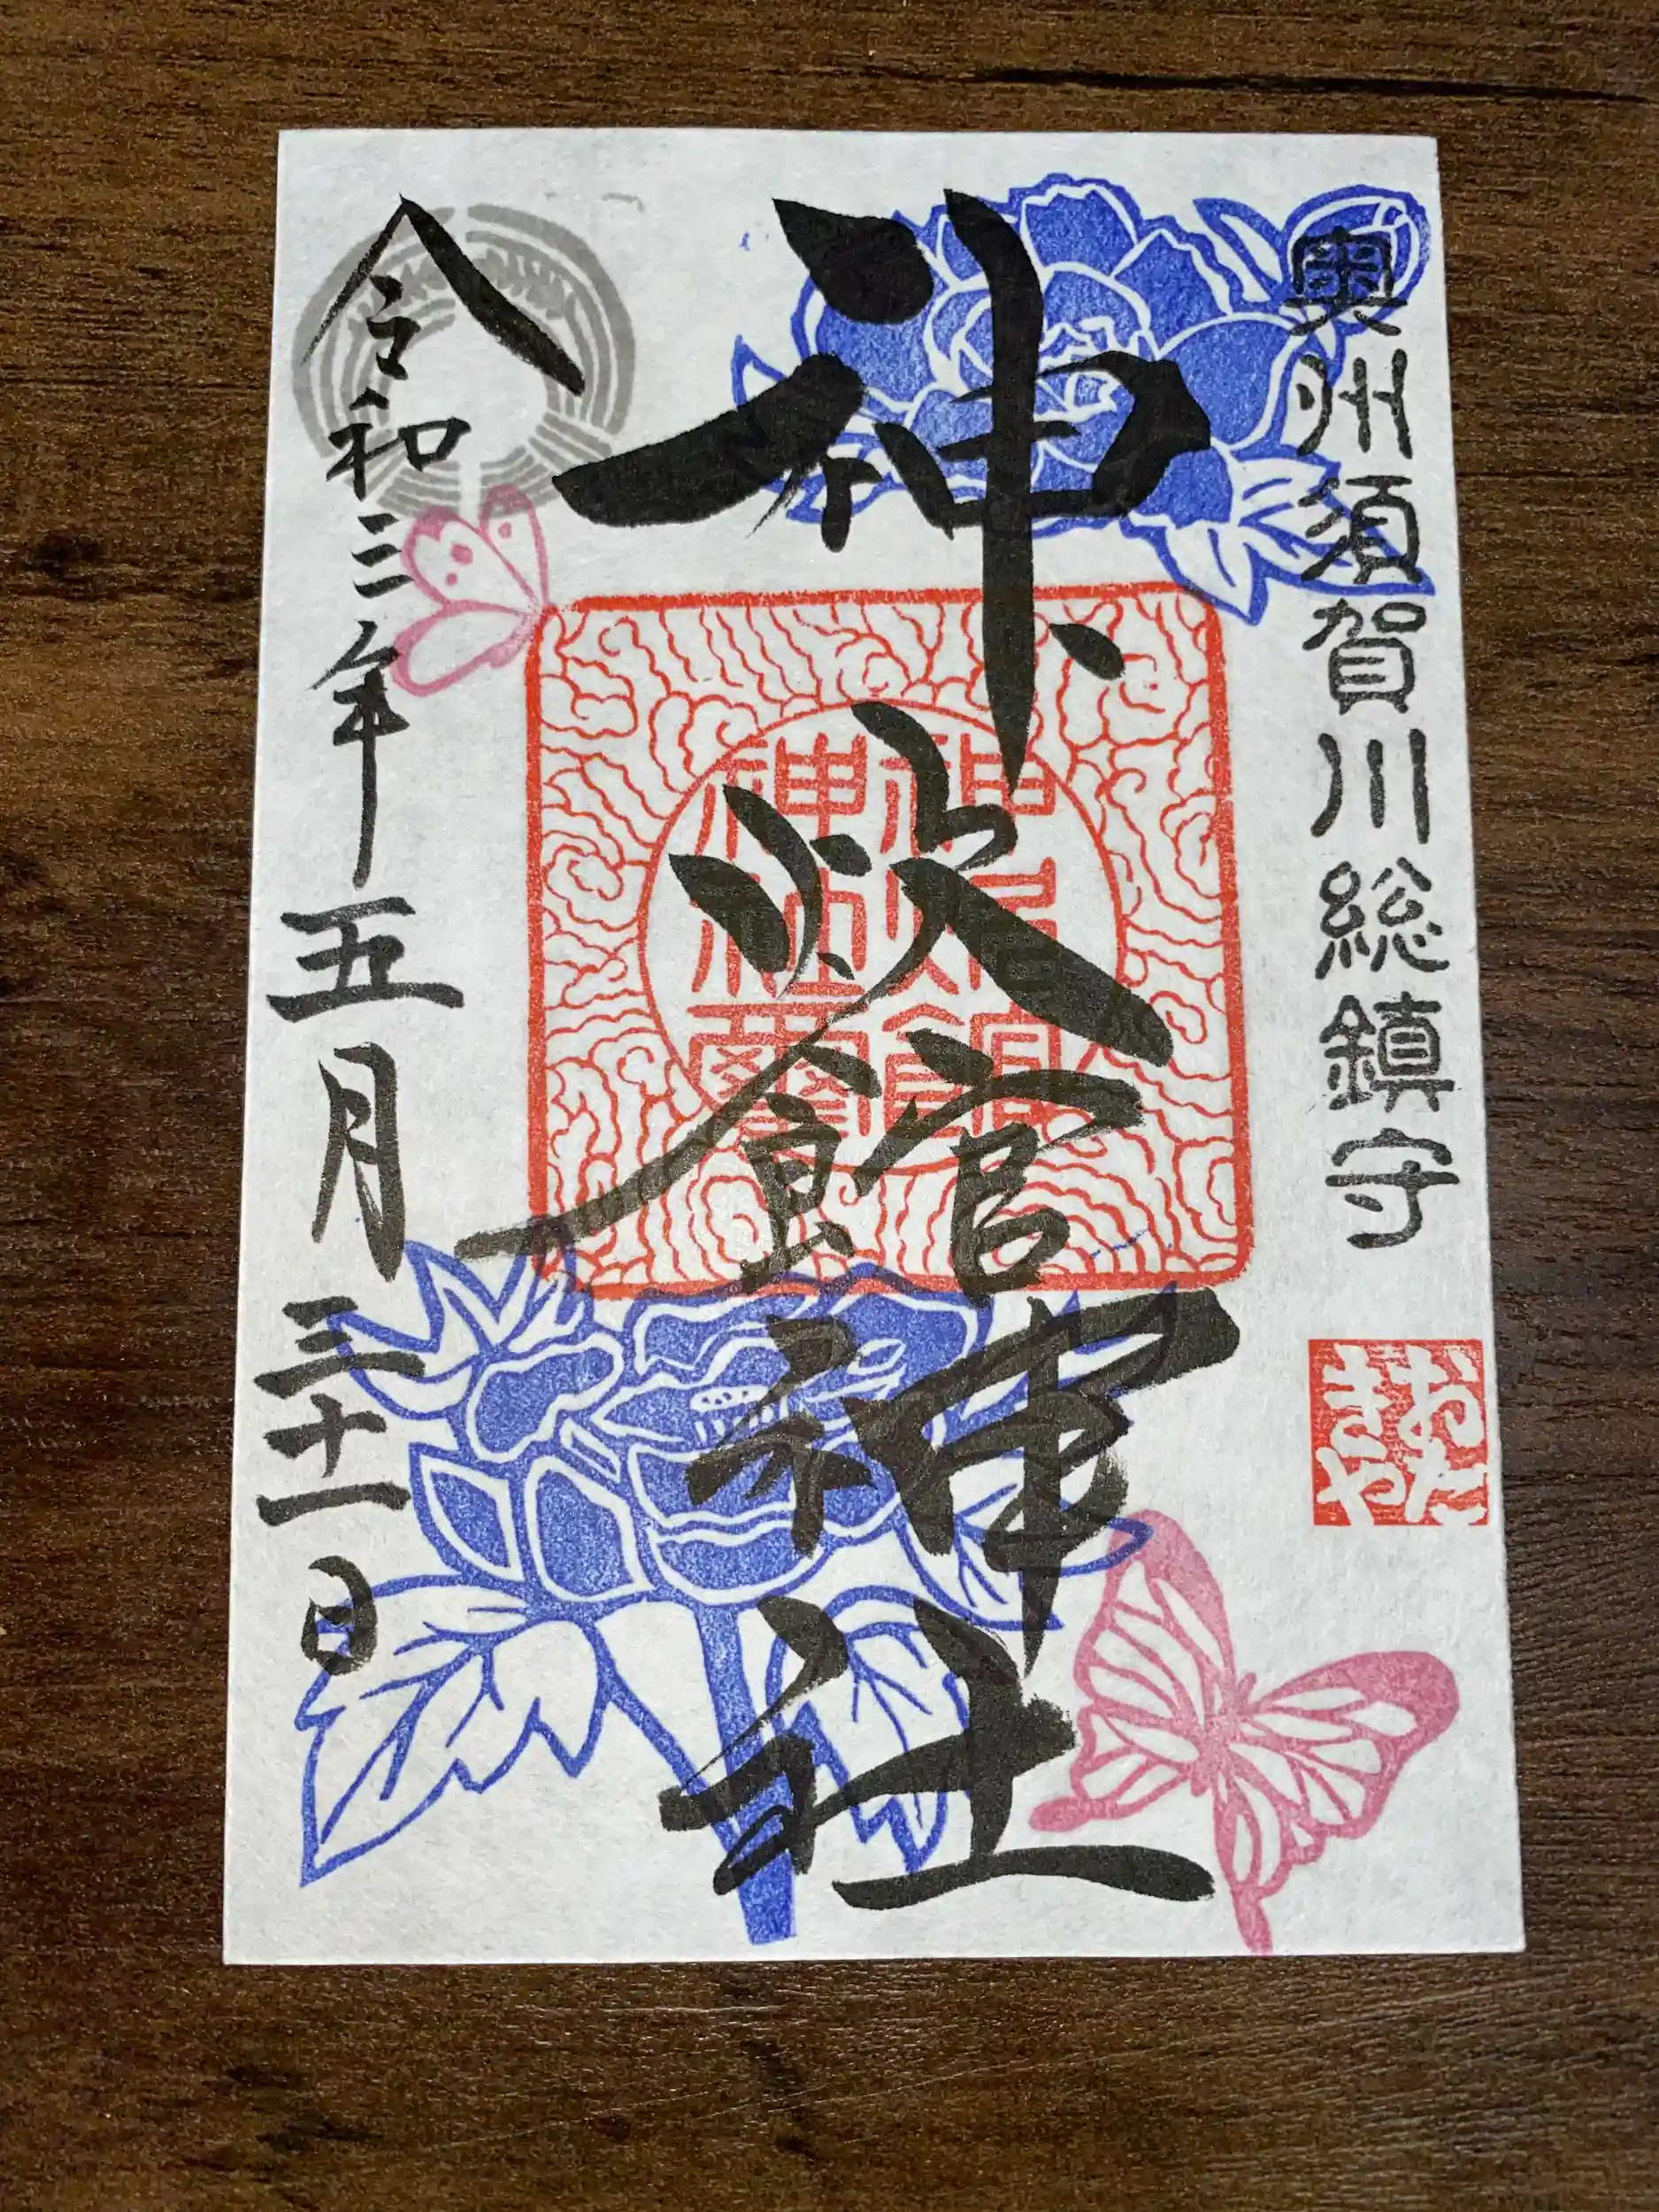 奥州須賀川総鎮守
おたきや
神炊館神社
神炊館
神社璽
令和三年五月三十一日